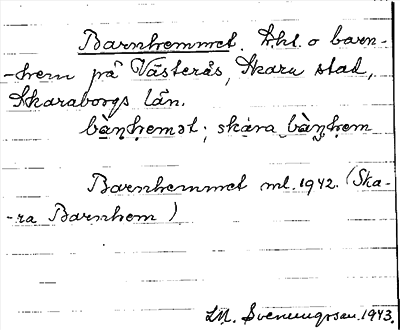 Barnhemmet. Lht. o barn-
-hem på Västerås, Skara stad,
Skaraborgs län.
bàṇhemət; skára bàṇhem
Barnhemmet ml. 1942. (Ska-
-ra Barnhem)
LM. Svenungsson. 1943.